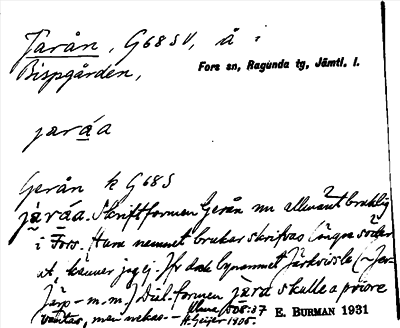 Jarån, G68SV, å i
Bispgården,
Fors sn, Ragunda tg, Jämtl. l.
jaráa
Gerån k G68S
járáa. Skriftformen Gerån nu allmänt bruklig
i Fors. Huru namnet brukar skrifvas längre söder
ut, känner jag ej. Jfr dock bynamnet Järkvissle (~ Jer-
Järp- m.m.) Dial.-formen jara skulle a priori
väntas, men
E. BURMAN 1931